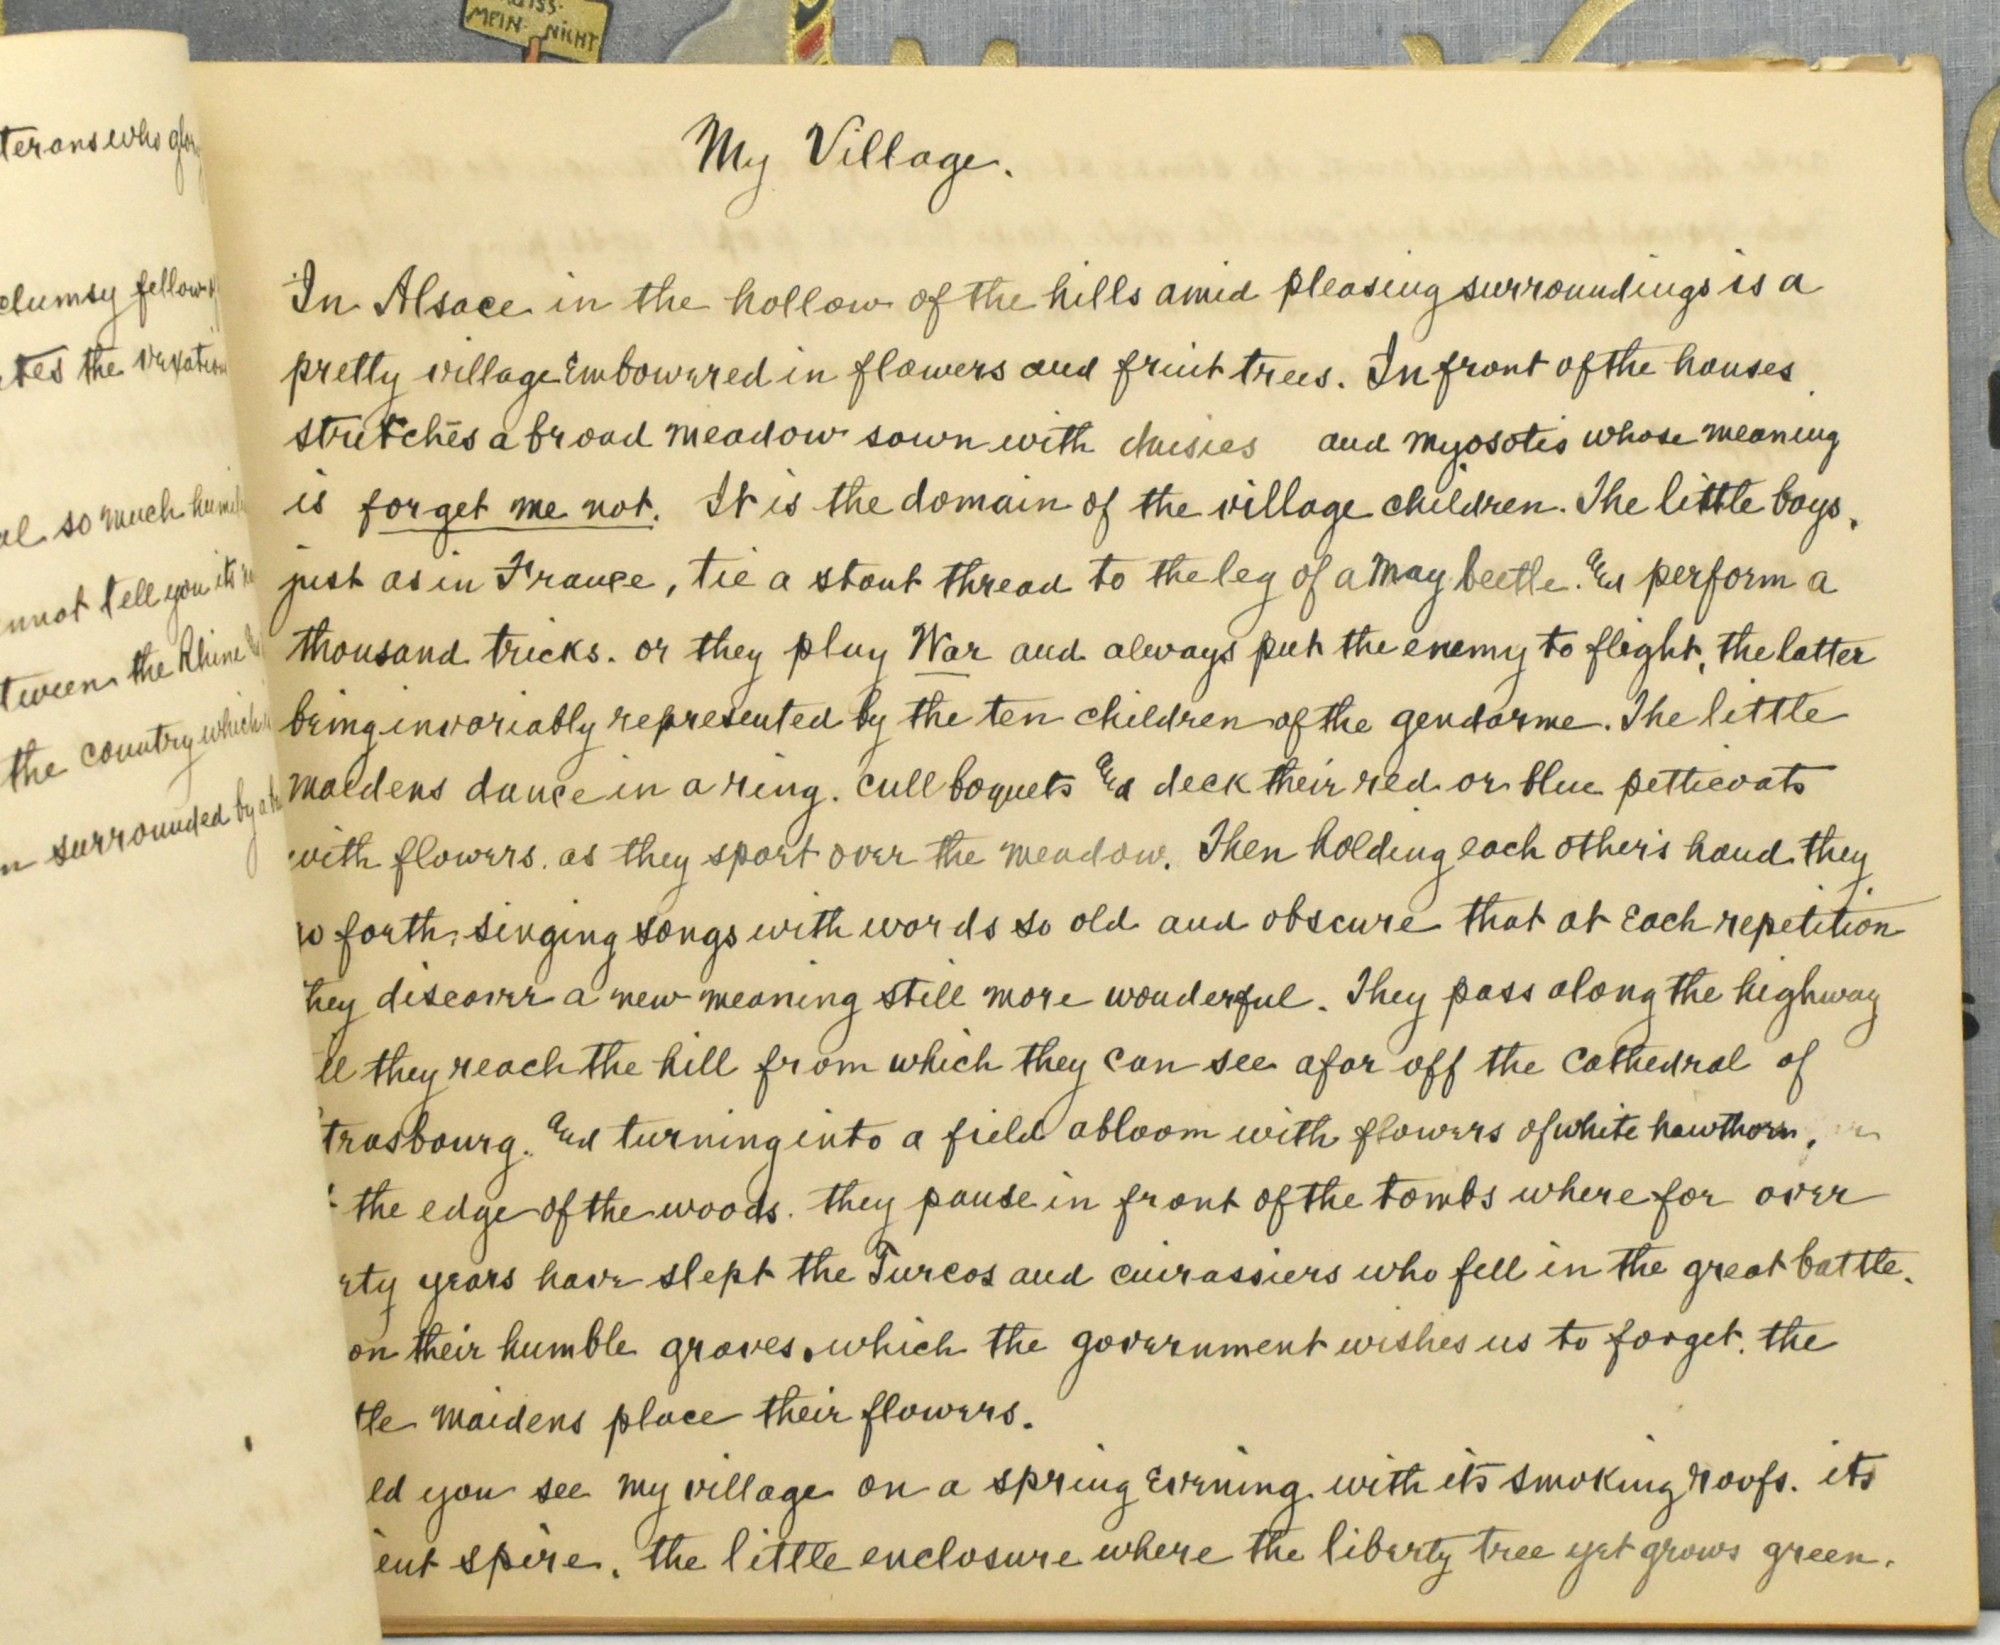 MEIN NICHT
terans who
clumsy fellow
the vexation
so much
tell you its
tween the Rhine
the country which
surrounded by a
My Village.
In Alsace in the hollow of the hills amid pleasing surroundings is a
pretty village embowered in flowers and fruit trees. In front of the houses
stretches a broad meadow sown with daisies and myosotis whose meaning
is forget me not. It is the domain of the village children. The little boys,
just as in France, tie a stout thread to the leg of a May beetle. and perform a
thousand tricks. or they play War and always put the enemy to flight, the latter
being invariably represented by the ten children of the gendarme. The little
maidens dance in a ring. cull boquets and deck their red or blue petticoats
with flowers. as they sport over the meadow. Then holding each other's hand they
forth, singing songs with words so old and obscure that at each repetition
they discover a new meaning still more wonderful. They pass along the highway
ll they reach the hill from which they can see afar off the Cathedral of
trasbourg. and turning into a field abloom with flowers of white hawthorn,
the edge of the woods. they pause in front of the tombs where for over
rty years have slept the Turcos and cuirassiers who fell in the great battle.
on their humble graves, which the government wishes us to forget. the
tle maidens place their flowers.
ld you see my village on a spring evening. with its smoking roofs. its
ent spire, the little enclosure where the liberty tree yet grows green.